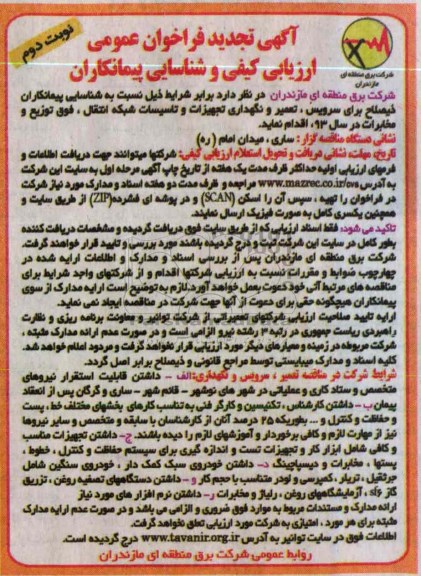 نوبت دوم
آگهی تجدید فراخوان عمومی
ارزیابی کیفی و شناسایی پیمانکاران
شرکت برق منطقه ای
مازندران
شرکت برق منطقه ای مازندران در نظر دارد برابر شرایط ذیل نسبت به شناسایی پیمانکاران
ذیصلاح برای سرویس ، تعمیر و نگهداری تجهیزات و تاسیسات شبکه انتقال ، فوق توزیع و
مخابرات در سال ۹۳، اقدام نماید.
نشانی دستگاه مناقصه گزار : ساری ، میدان امام (ره)
تاریخ، مهلت، نشانی دریافت و تحویل استعلام ارزیابی کیفی: شرکتها میتوانند جهت دریافت اطلاعات و
فرمهای ارزیابی اولیه حداکثر ظرف مدت یک هفته از تاریخ چاپ آگهی مرحله اول به سایت این شرکت
به آدرس www.mazrec.co.ir/cvs مراجعه و ظرف مدت دو هفته اسناد و مدارک مورد نیاز شرکت
در فراخوان را تهیه ، سپس آن را اسکن (SCAN) و در پوشه ای فشرده(ZIP) از طریق سایت و
همچنین یکسری کامل به صورت فیزیک ارسال نمایند.
تاکید می شود: فقط اسناد ارزیابی که از طریق سایت فوق دریافت گردیده و مشخصات دریافت کننده
بطور کامل در سایت این شرکت ثبت و درج گردیده باشند مورد بررسی و تایید قرار خواهند گرفت.
شرکت برق منطقه ای مازندران پس از بررسی اسناد و مدارک و اطلاعات ارایه شده در
چهارچوب ضوابط و مقررات نسبت به ارزیابی شرکتها اقدام و از شرکتهای واجد شرایط برای
مناقصه های مرتبط آتی خود دعوت بعمل خواهد آورد.لازم به توضیح است ارایه مدارک از سوی
پیمانکاران هیچگونه حقی برای دعوت از آنها جهت شرکت در مناقصه ایجاد نمی نماید.
ارایه تایید صلاحیت ارزیابی شرکتهای تعمیراتی از شرکت توانیر و معاونت برنامه ریزی و نظارت
راهبردی ریاست جمهوری در رتبه ۳ رشته نیرو الزامی است و در صورت عدم ارائه مدارک مثبته ،
شرکت مربوطه در زمینه و معیارهای دیگر مورد ارزیابی قرار نخواهد گرفت و مردود اعلام خواهد شد.
کلیه اسناد و مدارک میبایستی توسط مراجع قانونی و ذیصلاح برابر اصل گردد.
شرایط شرکت در مناقصه تعمیر ، سرویس و نگهداری: الف - داشتن قابلیت استقرار نیروهای
متخصص و ستاد کاری و عملیاتی در شهر های نوشهر - قائم شهر - ساری و گرگان پس از انعقاد
پیمان ب - داشتن کارشناس ، تکنیسین و کارگر فنی به تناسب کارهای بخشهای مختلف خط، پست
و حفاظت و کنترل و ... بطوریکه ۲۵ درصد آنان از کارشناسان با سابقه و متخصص و سایر نیروها
نیز از مهارت لازم و کافی برخوردار و آموزشهای لازم را دیده باشند. ج- داشتن تجهیزات مناسب
و کافی شامل ابزار کار و تجهیزات تست و اندازه گیری برای سیستم حفاظت و کنترل ، خطوط ،
پستها ، مخابرات و دیسپاچینگ د- داشتن خودروی سبک کمک دار ، خودروی سنگین شامل
جرثقیل ، تریلر ، کمپرسی و لودر متناسب با حجم کار و - داشتن دستگاههای تصفیه روغن ، تزریق
گاز sf6 ، آزمایشگاههای روغن ، رلیاژ و مخابرات ر- داشتن نرم افزار های مورد نیاز
ارائه مدارک و مستندات مربوط به موارد فوق ضروری و الزامی می باشد و در صورت عدم ارایه مدارک
مثبته برای هر مورد ، امتیازی به شرکت مورد ارزیابی تعلق نخواهد گرفت.
اطلاعات فوق در سایت توانیر به آدرس www.tavanir.org.ir درج گردیده است.
روابط عمومی شرکت برق منطقه ای مازندران